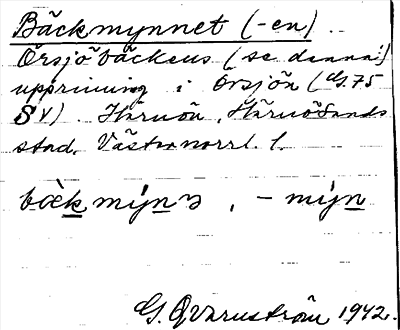 Bäckmynnet (-en)
Örsjöbäckens (se denna!)
upprinning i Örsjön (G.75
SV). Härnön, Härnösands
stad, Västernorrl. l.
bækmýnɘ, -mýn
G. Qvarnström 1942.